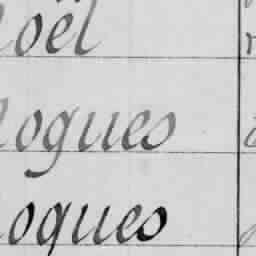 oël
ogues
oques